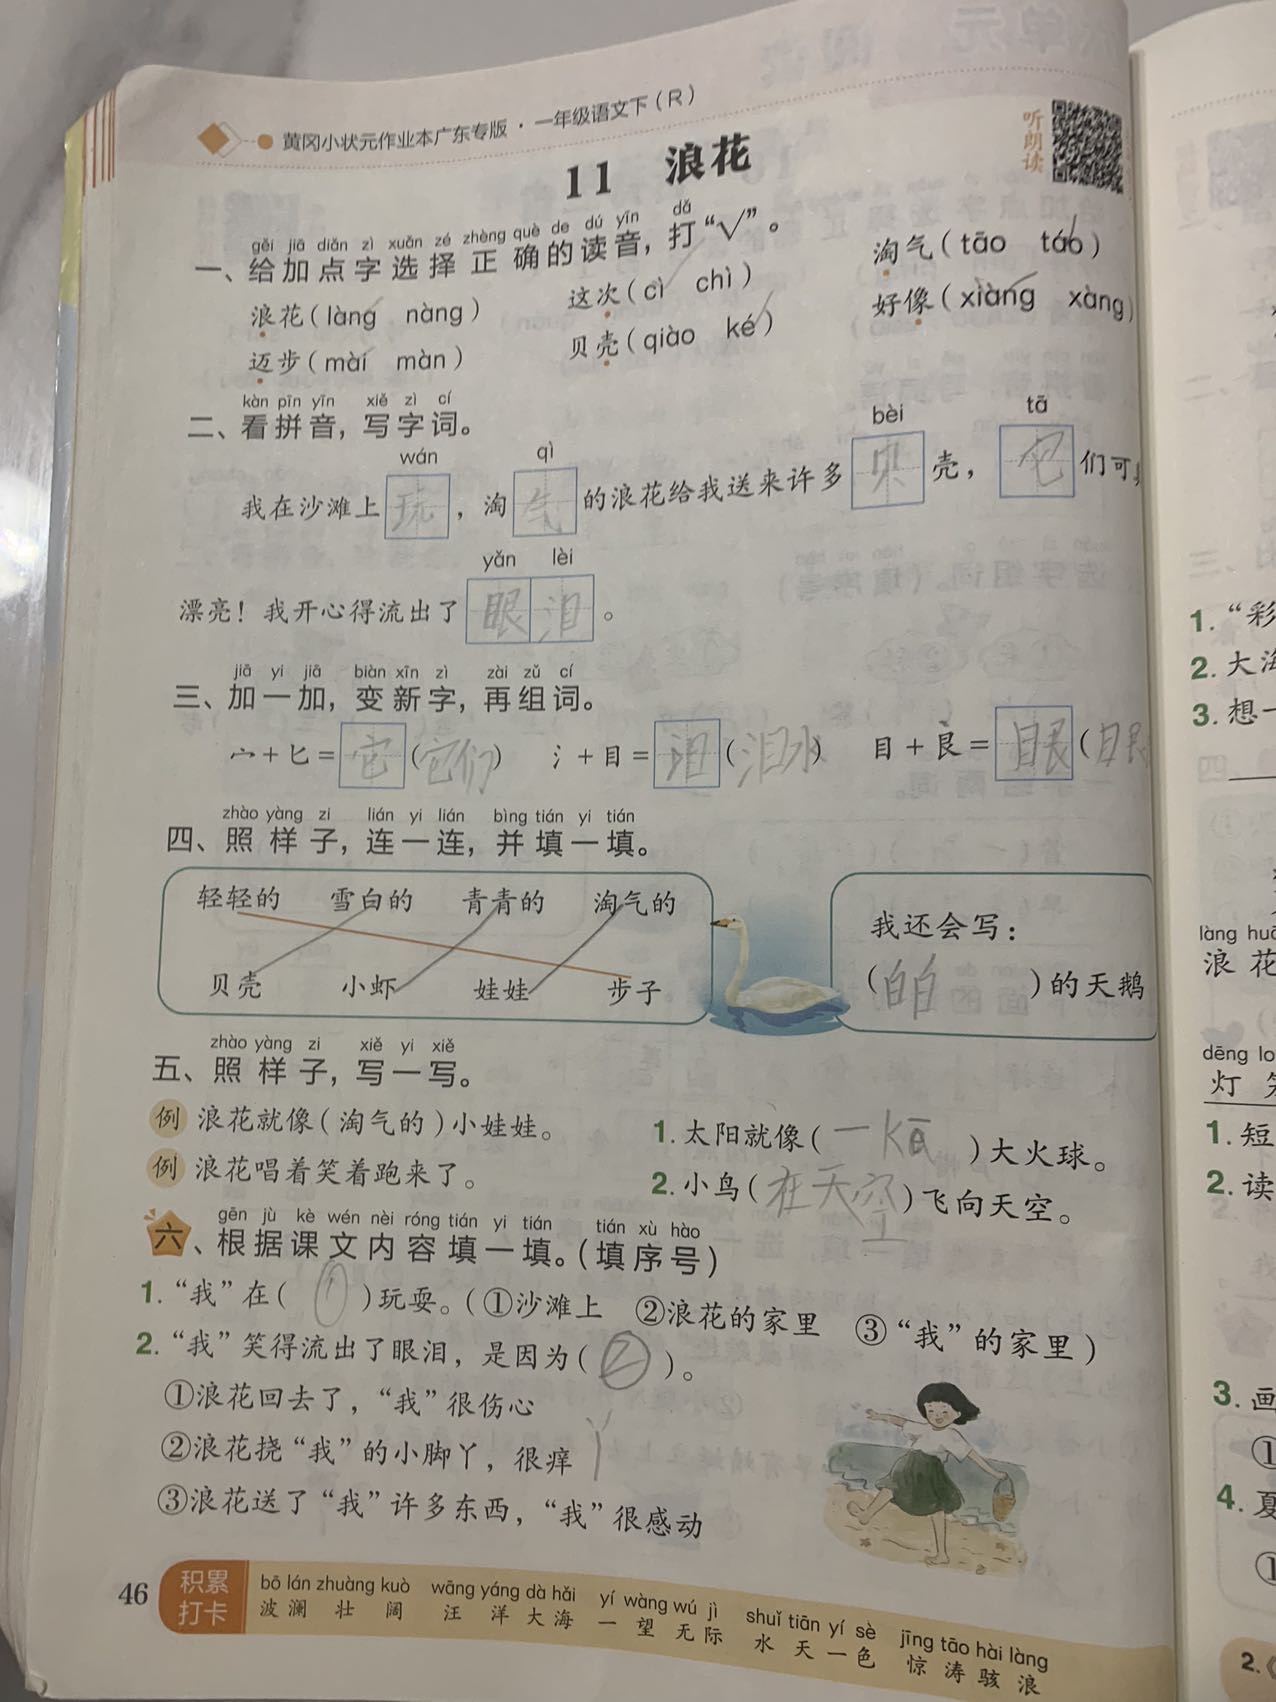 黄冈小状元作业本广东专版·一年级语文下(R)
听朗读
11 浪花
gěi jiā diǎn zì xuǎn zé zhèng què de dú yīn dǎ
一、给加点字选择正确的读音，打“√”。
浪花(làng nàng) 这次(cì chì) 淘气(tāo táo)
迈步(mài màn) 贝壳(qiào ké) 好像(xiàng xàng)
kàn pīn yīn xiě zì cí
二、看拼音，写字词。
wán qì bèi tā
我在沙滩上玩，淘气的浪花给我送来许多贝壳，它们可
yǎn lèi
漂亮！我开心得流出了眼泪。
jiā yi jiā biàn xīn zì zài zǔ cí
三、加一加，变新字，再组词。
宀+匕=它(它们) 氵+目=泪(泪水) 目+艮=眼(眼
zhào yàng zi lián yi lián bìng tián yi tián
四、照样子，连一连，并填一填。
轻轻的 雪白的 青青的 淘气的
贝壳 小虾 娃娃 步子
我还会写：
(白白)的天鹅
zhào yàng zi xiě yi xiě
五、照样子，写一写。
例 浪花就像(淘气的)小娃娃。
例 浪花唱着笑着跑来了。
1.太阳就像(一kē)大火球。
2.小鸟(在天空)飞向天空。
gēn jù kè wén nèi róng tián yi tián tián xù hào
六、根据课文内容填一填。(填序号)
1.“我”在(①)玩耍。(①沙滩上 ②浪花的家里 ③“我”的家里)
2.“我”笑得流出了眼泪，是因为(②)。
①浪花回去了，“我”很伤心
②浪花挠“我”的小脚丫，很痒 丫
③浪花送了“我”许多东西，“我”很感动
46
积累打卡
bō lán zhuàng kuò wāng yáng dà hǎi yí wàng wú jì shuǐ tiān yí sè jīng tāo hài làng
波澜壮阔 汪洋大海 一望无际 水天一色 惊涛骇浪
1.“彩
2.大海
3.想一
làng huā
浪花
dēng lo
灯
1.短
2.读
3.画
①
4.夏
①
2.《